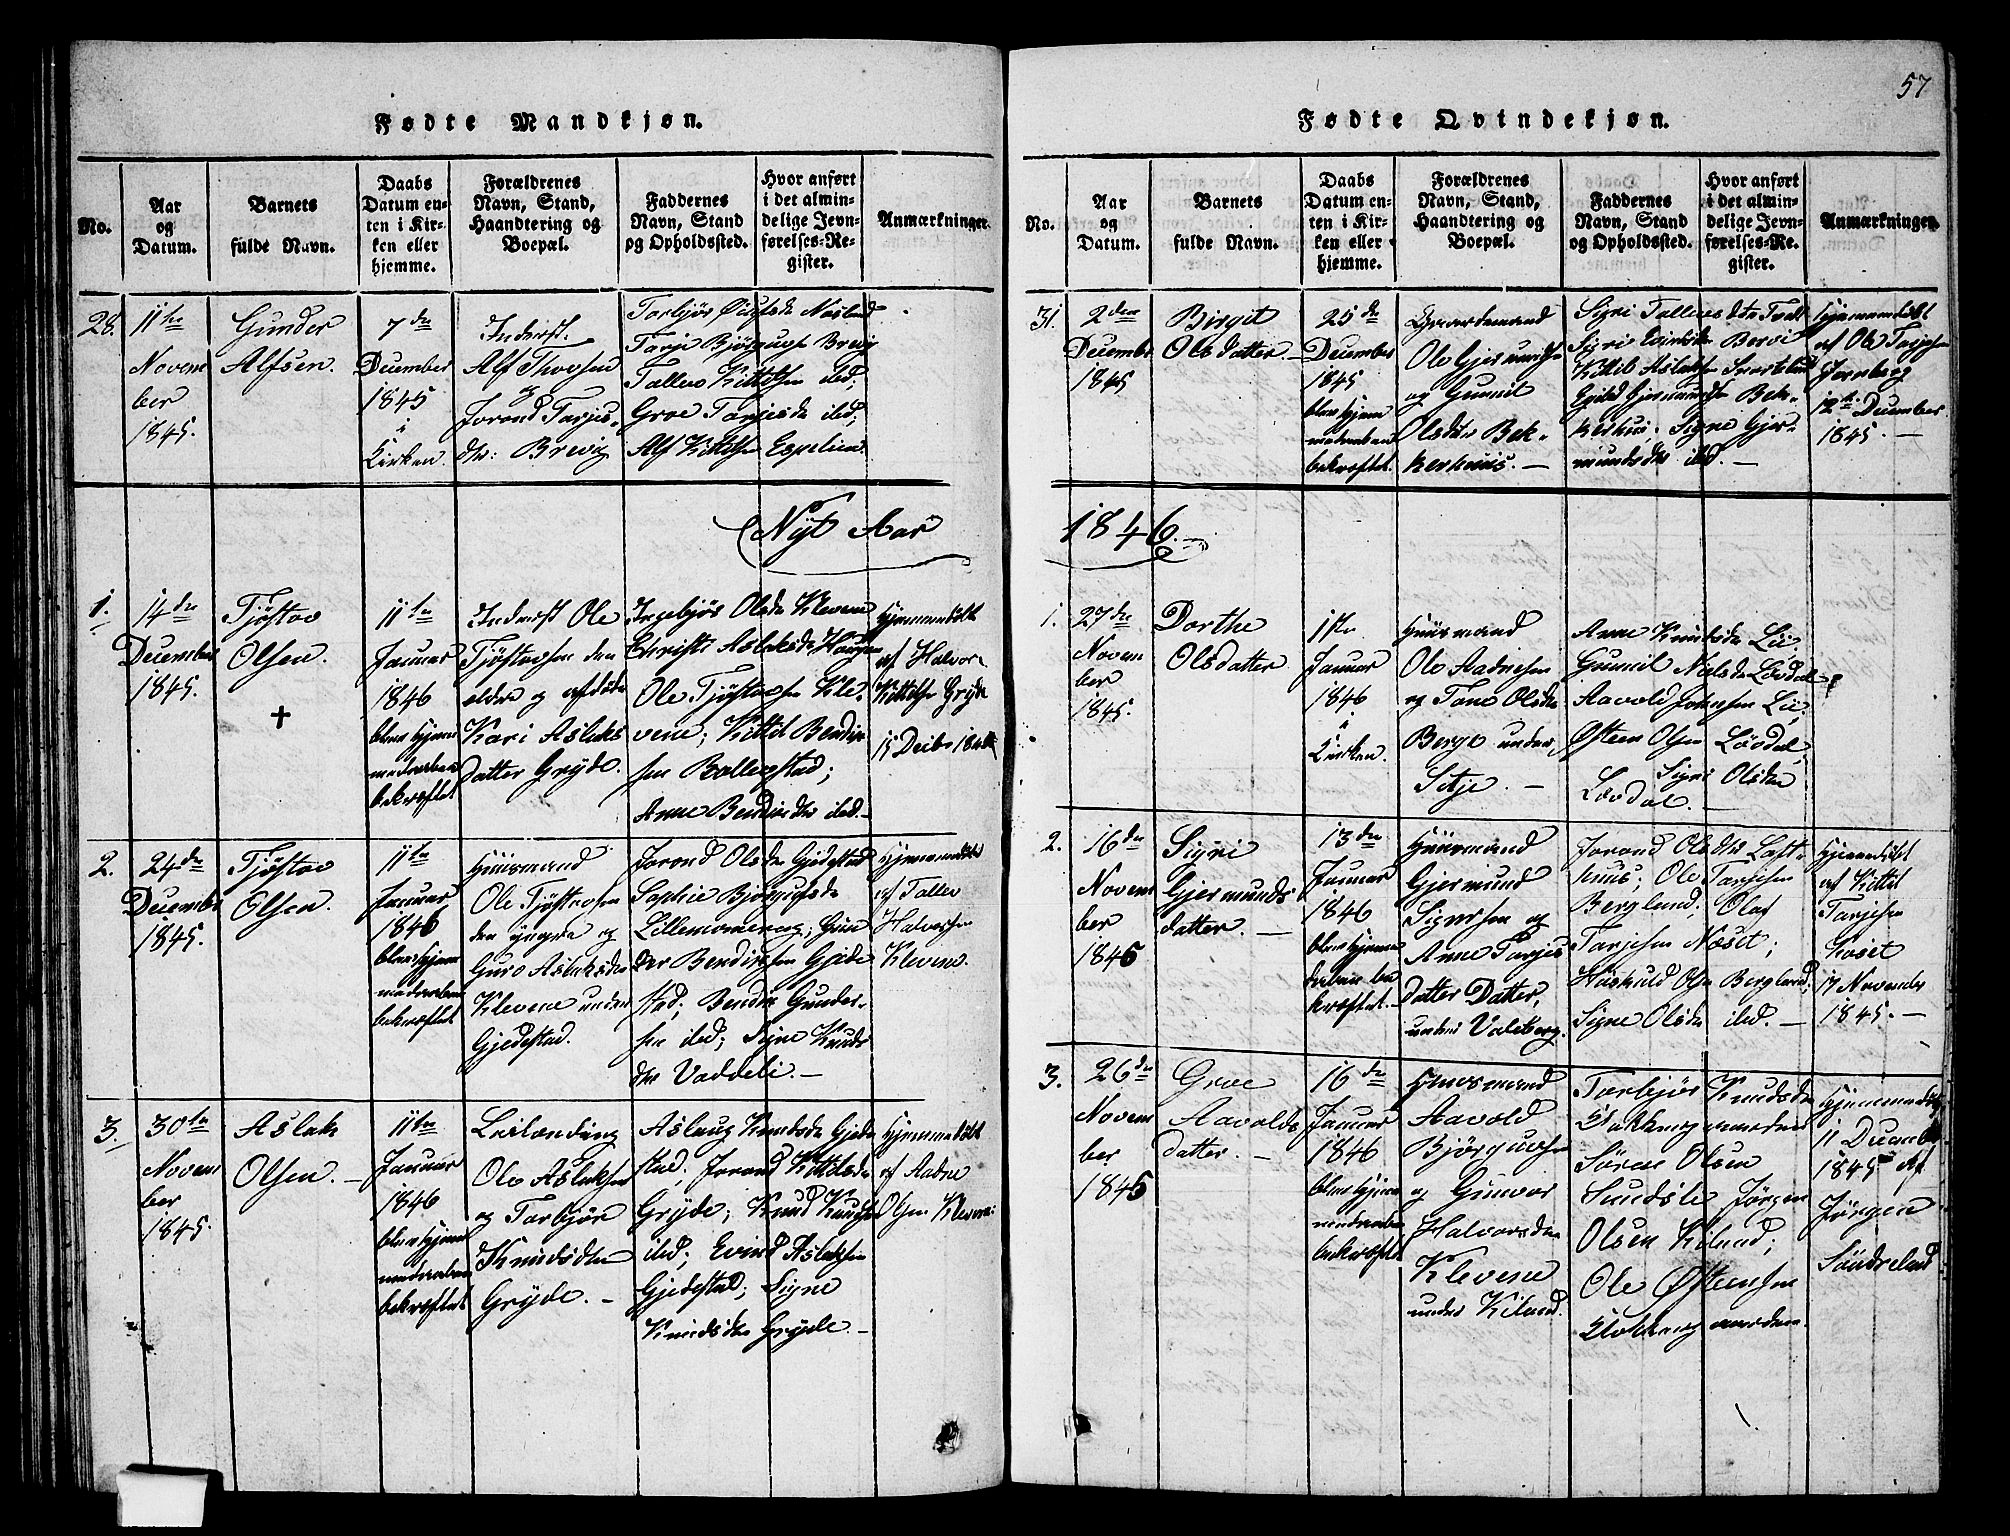 57
Fødte Mandkjøn.
No.
Aar
og
Datum.
Barnets
fulde Navn.
Daabs
Datum en-
ten i Kir-
ken eller
hjemme.
Forældrenes
Navn, Stand,
Haandtering og
Boepæl.
Faddernes
Navn, Stand
og Opholdssted.
Hvor anført
i det almin-
delige Jevn-
førelses-Re-
gister.
Anmærkninger.
28.
11te
Novem
ber
1845.
Gunder
Alfsen.
7de
December
1845
i
Kirken.
Inderst.
Alf Thorsen
og
Jorond Tarjes-
dtr: Brevig
Torbjør Næsland
Tarje Bjørgufs Brevig
Tallev Kittilsen ibd,
Groe Tarjesdr ibd,
Alf Kittilsen Espelien.
Nyt Aar
1.
14de
December
1845.
Tjøstov
Olsen.
+
11te
Januar
1846
blev hjem
medaaben
bekræftet
Inderst Ole
Tjøstovsen den
eldre og afdøde
Kari Aslaks
datter Gryde.
Ingebjør Olsdr Klevene
Christi Aslaksdr Haugen
Ole Tjøstovsen Kle-
vene; Kittil Bendix
sen Ballestad;
Anne Bendixdtr ibd.-
Hjemmedøbt
af Halvor
Kittilsen Gryde
15 Decbr 1845
2.
24de
December
1845.
Tjøstov
Olsen.
11te
Januar
1846
blev hjem
medaaben
bekræftet
Huusmand
Ole Tjøstovsen
den yngre og
Guro Aslaksdr
Klevene under
Gjedestad.
Jorond Olsdr Gjedestad
Sophie Bjørgufsdr
Lillemoneraog; Gun
der Bendixsen Gjede
stad; Bendix Gunder-
sen ibd; Signe Knuds
dtr Vaddeli.-
Hjemmedøbt
af Tallev
Halvorsen
Klevene.
3.
30te
Novem
ber
1845.
Aslak
Olsen.-
11te
Januar
1846
blev hjem
medaaben
bekræftet
Leilænding
Ole Aslaksen
og Torbjør
Knudsdtr
Gryde.-
Aslaug Knudsdr Gjede
stad; Jorond Kittilsdr
Gryde; Knud Knudsen
ibd; Evind Aslaksen
Gjedestad; Signe
Knudsdtr Gryde.-
Hjemmedøbt
af Aadne
Olsen Klevene
Fødte Qvindekjøn.
No.
Aar
og
Datum.
Barnets
fulde Navn.
Daabs
Datum en-
ten i Kir-
ken eller
hjemme.
Forældrenes
Navn, Stand,
Haandtering og
Boepæl.
Faddernes
Navn, Stand
og Opholdssted.
Hvor anført
i det almin-
delige Jevn-
førelses-Re-
gister.
Anmærkninger.
31.
2den
December
1845
Birgit
Olsdatter.-
25de
December
1845
blev hjem
medaaben
bekræftet
Gaardmand
Ole Gjermundsen
og Gunnil
Olsdtr Bek-
kerhuus.-
Sigri Tallevsdtr Tvett
Sigri Bervi
Kittil Aslaksen Svartdal
Gjermunds Bek-
kerhus; Signe Gjer-
mundsdtr ibd.-
Hjemmedøbt
af Ole Tarjesen
Jernberg
12te December
1845.-
1846.
1.
27de
Novem
ber
1845.
Dorthe
Olsdatter
1ste
Januar
1846
i
Kirken.
Huusmand
Ole Aadnesen
og Tone Olsdr
Berge under
Sitje.-
Anne Knudsdr Lie;
Gunnil Nielsdr Løvdal
Aavold Johnsen Lie;
Østen Olsen Løvdal;
Sigri Olsdr
Løvdal.-
2.
16de
Novem
ber
1845
Sigri
Gjermunds
datter.-
13de
Januar
1846
blev hjemme
daaben be
kræftet.-
Huusmand
Gjermund
Sigursen og
Anne Tarjes
datter Datter,
under Valeberg.
Jorond Olsdtr Loft-
huus; Ole Tarjesen
Bergland; Olaf
Tarjesen Næset;
Høskuld Olsen Bergland;
Signe Olsdr ibd.-
Hjemmedøbt
af Kittil
Tarjesen
Næset
17 November
1845.-
3.
26de
Novem
ber
1845
Groe
Aavolds
datter.-
16de
Januar
1846
blev hjem
medaaben
bekræftet
Huusmand
Aavold
Bjørgufsen
og Gunvor
Halvorsdr
Klevene
under Kiland.
Torbjør Knudsdr
Søren Olsen
Sundsle Jørgen
Olsen Kiland;
Ole Østensen
Hjemmedøbt
11 December
1845 af
Jørgen
Søndreland